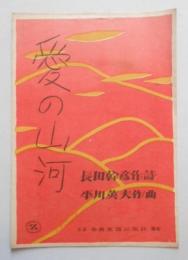 愛の山河
長田幹彦作詩
平川英夫作曲